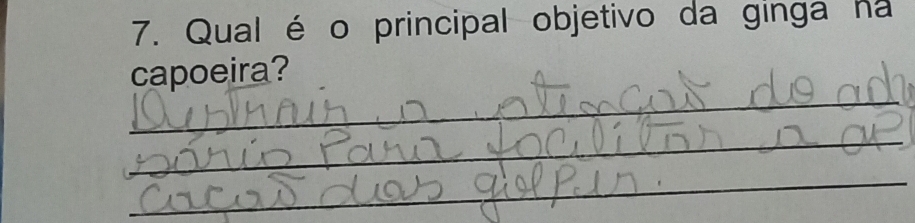 7. Qual é o principal objetivo da ginga na
capoeira?
a atençaõ do adv
sário Para facilitar a apl
cacaõ dos golpes.